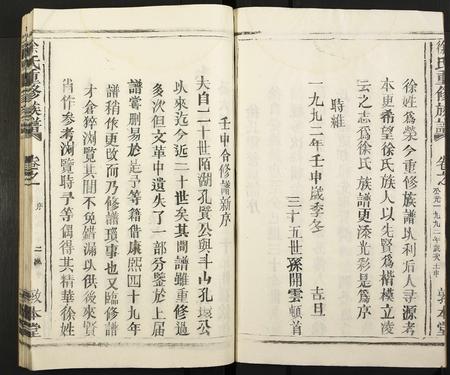 徐氏重修族譜
卷之一
公元一九九二年歲次壬申
敦本堂
徐姓爲榮今重修族譜以利后人尋源考
本更希望徐氏族人以先賢爲楷模立凌
云之志爲徐氏族譜更添光彩是爲序
時維
一九九二年壬申歲季冬 吉旦
三十五世孫開雲頓首
壬申合修譜新序
夫自二十世陌湖孔賢公與斗山孔 公
以來迄今近二十世矣其間譜雖重修過
多次但文革中遺失了一部分鑒於上届
譜嘗删易於是予等籍借康熙四十九年
譜稍作更改而乃修譜瑣事也又臨修譜
才倉猝浏覽其間不免錯漏以供後來賢
肖作参考浏覽時予等偶得其精華徐姓
徐氏重修族譜
卷之一
序
二
敦本堂